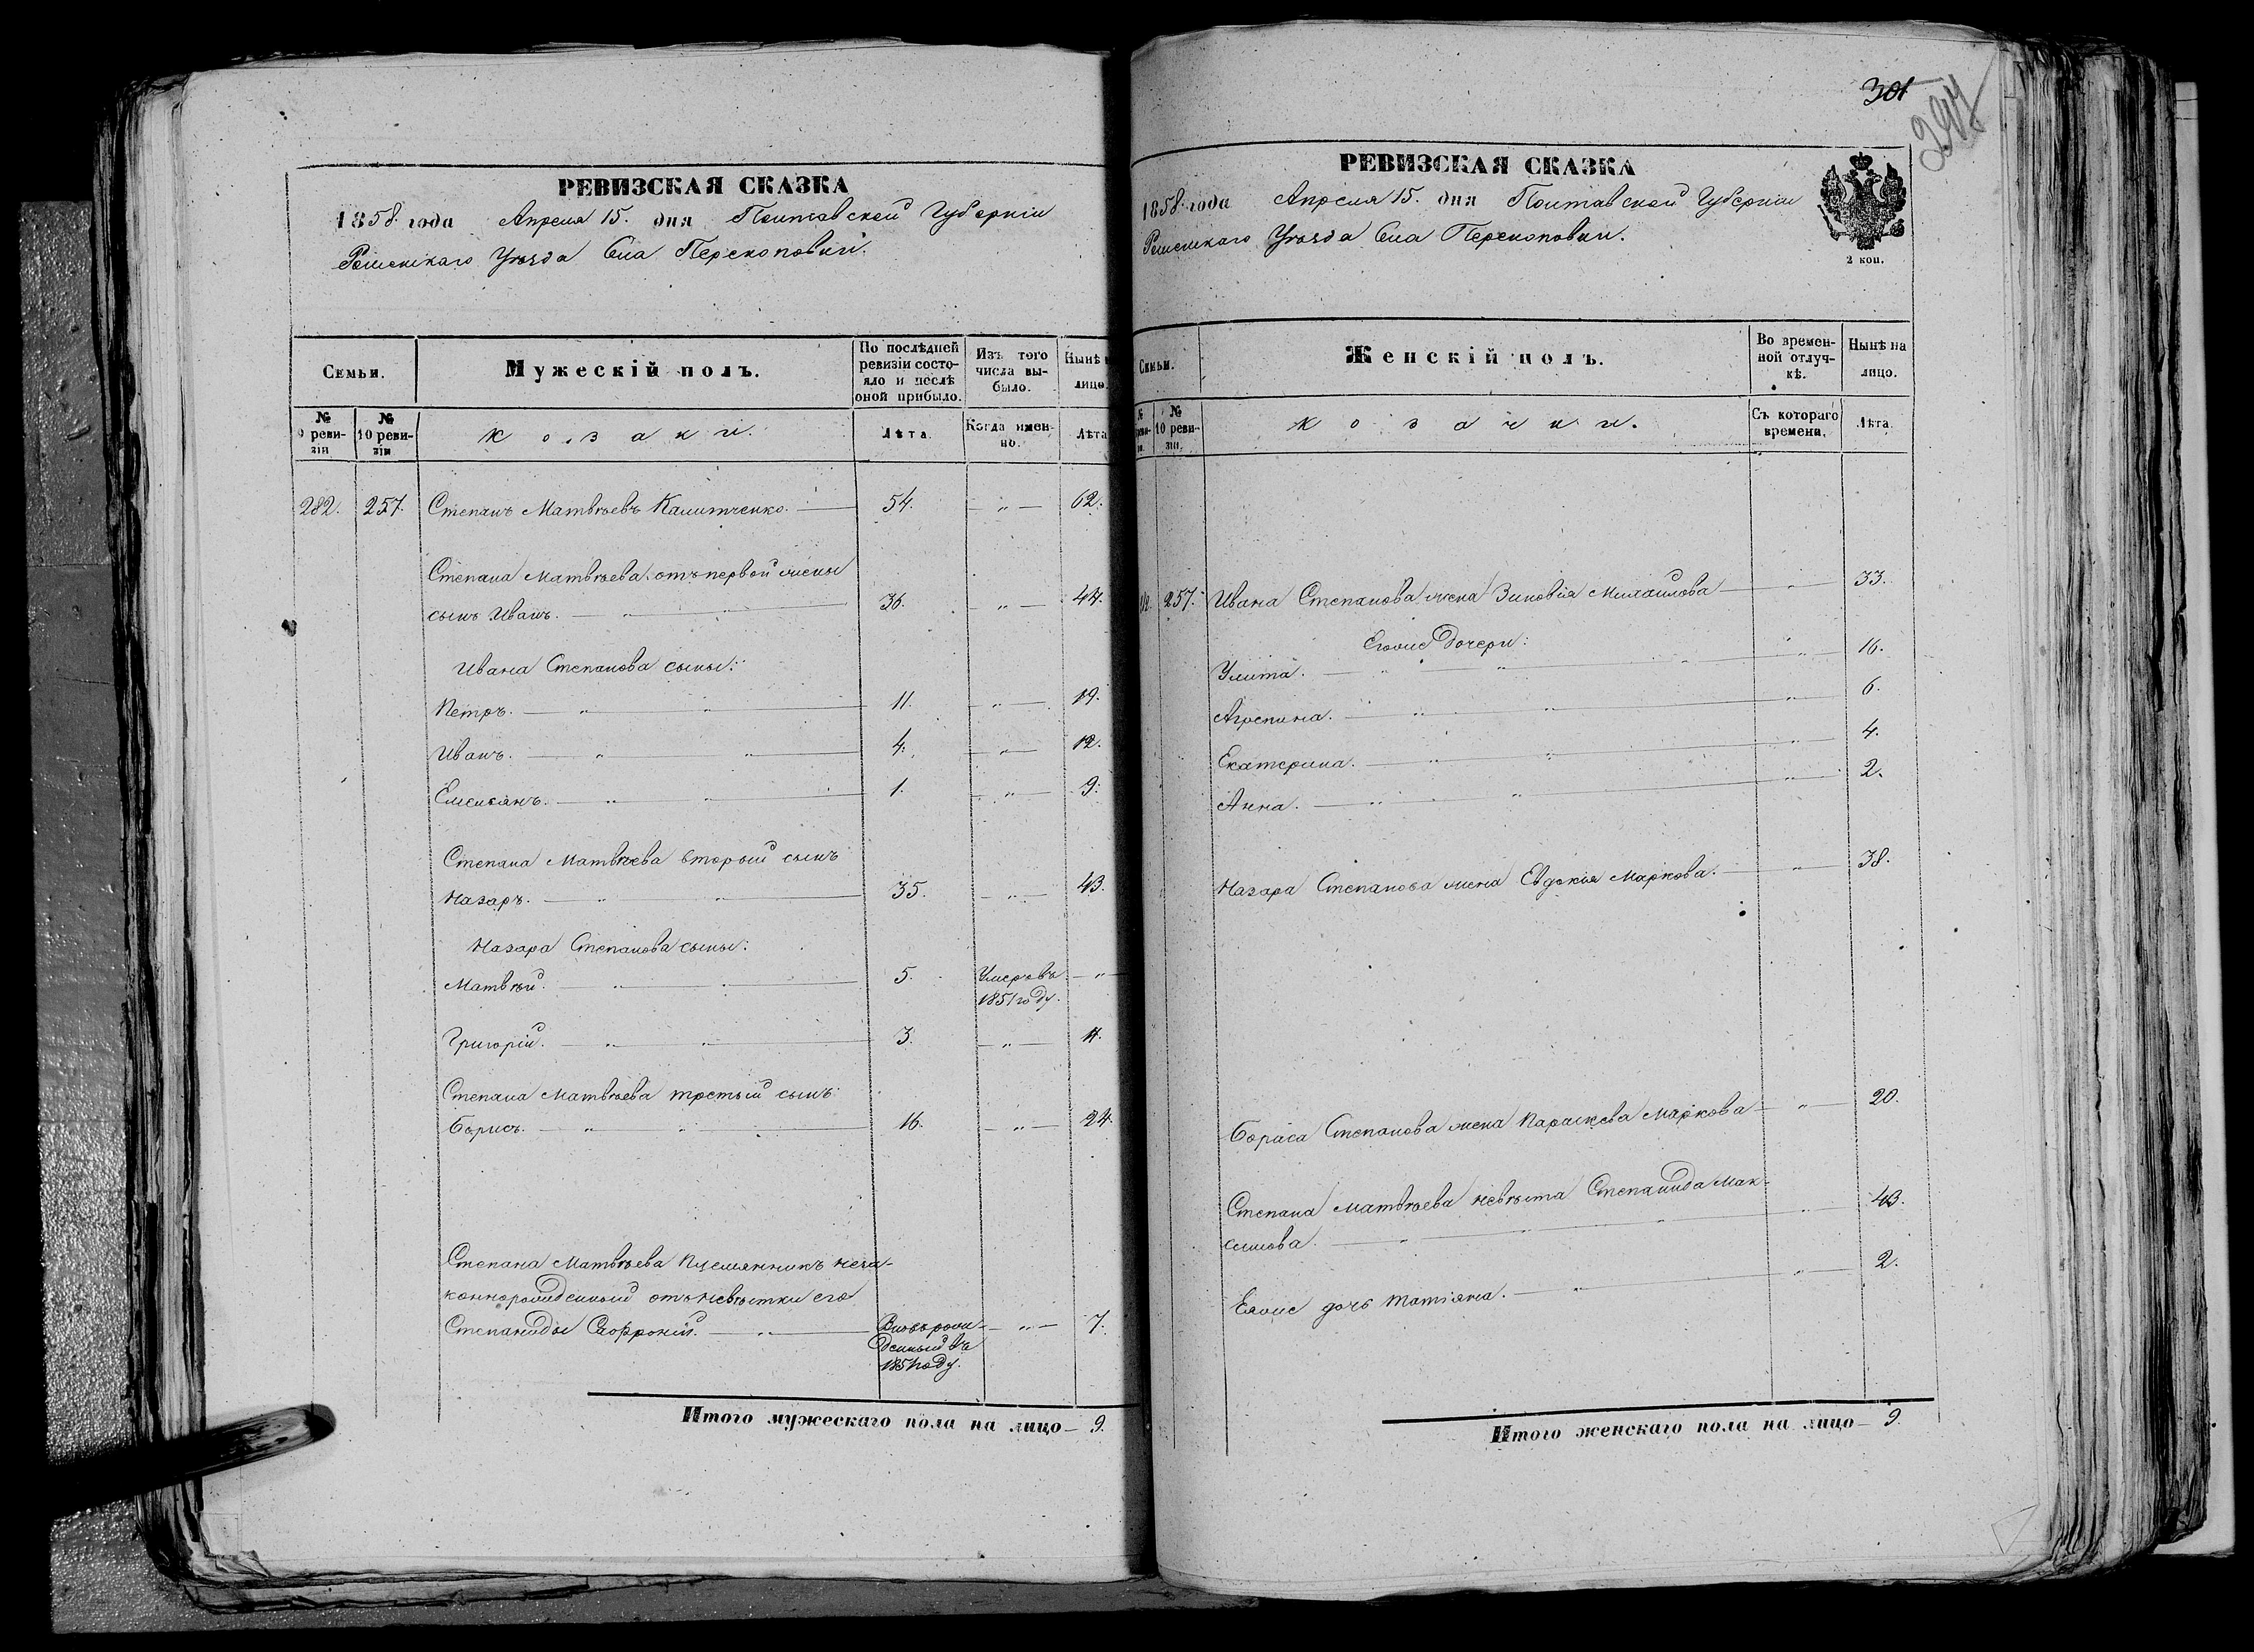 РЕВИЗСКАЯ СКАЗКА
1858. года Апреля 15. дня Полтавской Губерніи
Роменскаго Уѣзда Села Перекоповки.
Семьи.
Мужескій полъ.
По послѣдней ревизіи состояло и послѣ оной прибыло.
Изъ того числа выбыло.
Нынѣ на лицо.
№ 9 ревизіи
№ 10 ревизіи
Козаки.
Лѣта.
Когда именно.
Лѣта
282. 257. Степанъ Матвѣевъ Калитченко. — 54. — „ — 62.
Степана Матвѣева отъ первой жены
сынъ Иванъ. — „ — 36. — „ — 44.
Ивана Степанова сыны:
Петръ. — „ — „ — 11. — „ — 19.
Иванъ. — „ — „ — 4. — „ — 12.
Емельянъ. — „ — „ — 1. — „ — 9.
Степана Матвѣева вторый сынъ
Назаръ. — „ — „ — 35. — „ — 43.
Назара Степанова сыны:
Матвѣй. — „ — „ — 5. Умеръ въ — „
1851 году.
Григорій. — „ — „ — 3. — „ — 11.
Степана Матвѣева третьий сынъ
Борисъ. — „ — „ — 16. — „ — 24.
Степана Матвѣева племянникъ неза-
коннорожденный отъ невѣстки его
Степаниды Софроній. — „ — Вновь рож- — „ — 7.
денный въ
1851 году.
Итого мужескаго пола на лицо — 9.
301
297
РЕВИЗСКАЯ СКАЗКА
1858. года Апреля 15. дня Полтавской Губерніи
Роменскаго Уѣзда Села Перекоповки.
2 коп.
Семьи.
Женскій полъ.
Во временной отлучкѣ.
Нынѣ на лицо.
№
№ 10 ревизіи.
Козачки.
Съ котораго времени.
Лѣта.
257. Ивана Степанова жена Зиновія Михайлова — „ — 33.
Егоже дочери:
Улита. — „ — „ — 16.
Агрепина. — „ — „ — 6.
Екатерина. — „ — „ — 4.
Анна. — „ — „ — 2.
Назара Степанова жена Евдокія Маркова. — „ — 38.
Бориса Степанова жена Параскева Маркова — „ — 20.
Степана Матвѣева невѣстка Степанида Мак-
симова. — „ — „ — 43.
Еяже дочь Татіяна. — „ — 2.
Итого женскаго пола на лицо — 9.